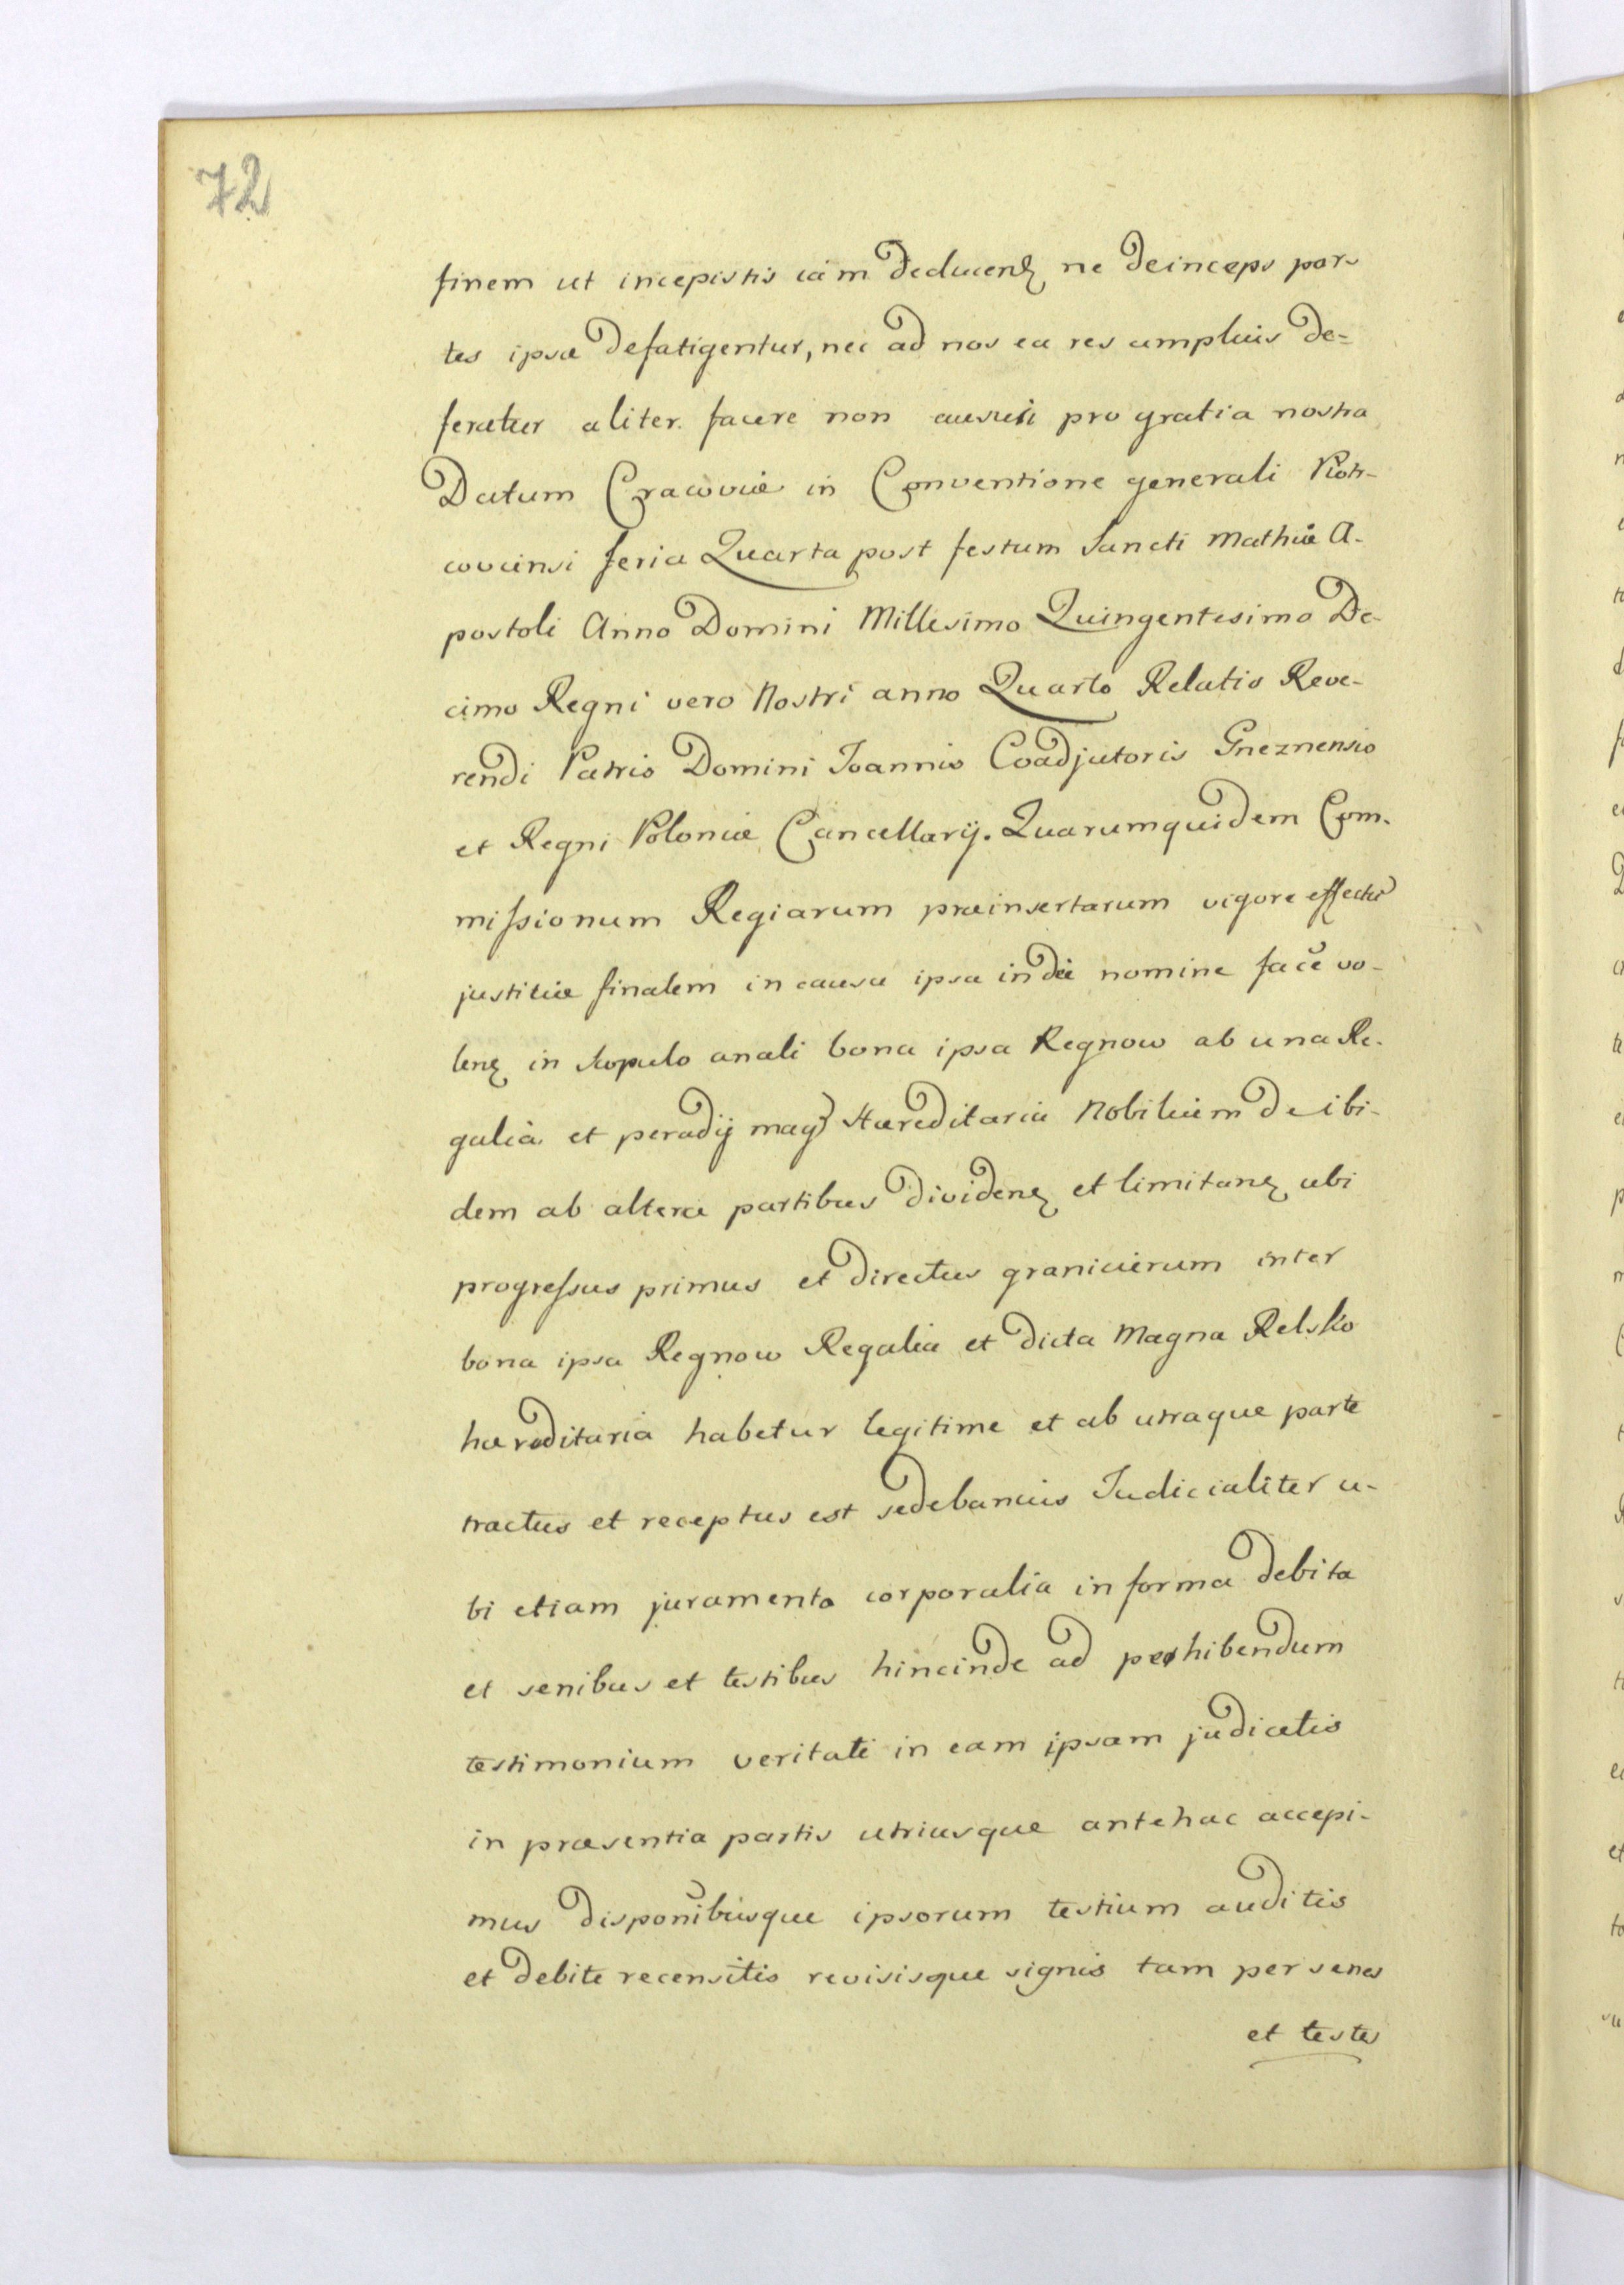 72
finem ut incepistis iam deducenđ ne deinceps par-
tes ipsæ defatigentur, nec ad nos ea res amplius de=
feratur aliter facere non ausuri pro gratia nostra
Datum Cracoviæ in Conventione generali Piotr-
coviensi feria Quarta post festum Sancti Mathiæ A-
postoli Anno Domini Millesimo Quingentesimo De-
cimo Regni vero Nostri anno Quarto Relatio Reve-
rendi Patris Domini Joannis Coadjutoris Gneznensis
et Regni Poloniæ Cancellarij. Quarumquidem Com-
missionum Regiarum præinsertarum vigore effectū
justitiæ finalem in causa ipsa in dei nomine facē vo-
lenę in scopulo anali bona ipsa Regnow ab una Re-
galia et Hæreditaria Nobilium de ibi-
dem ab altera partibus dividenę et limitanę ubi
progressus primus et directus granicierum inter
bona ipsa Regnow Regalia et dicta Magna Relsko
hæreditaria habetur legitime et ab utraque parte
tractus et receptus est sedebamus Judicialiter u-
bi etiam juramenta corporalia in forma debita
et senibus et testibus hincinde ad perhibendum
testimonium veritati in eam ipsam judicatis
in præsentia partis utriusque antehac accepi-
mus disponibusque ipsorum testium auditis
et debite recensitis revisisque signis tam per senes
et testes